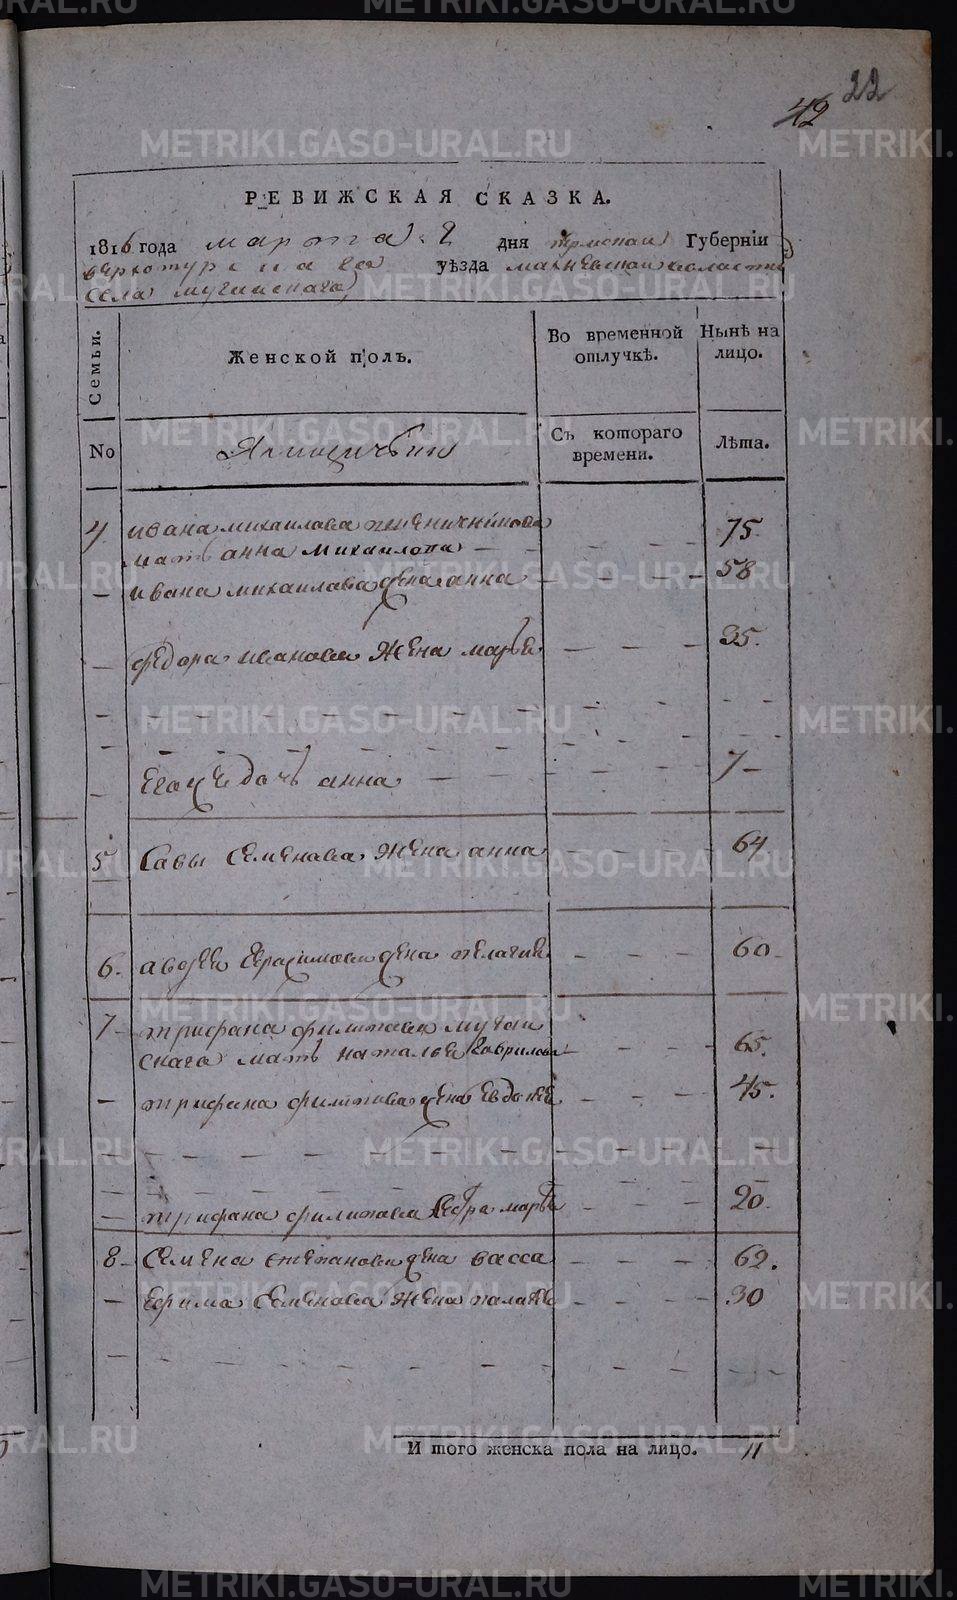 22
42
РЕВИЖСКАЯ СКАЗКА.
1816 года марта 2 дня пермской Губерніи
верхотурскаго уѣзда махневской волости
села мугайскаго
Семьи.
Женской полъ.
Во временной отлучкѣ.
Нынѣ на лицо.
No
Ямщичьи
Съ котораго времени.
Лѣта.
4 ивана михаилава пшеничникова
мать анна михаилова - - - - 75.
- ивана михаилава жена анна - - - - 58
- федора иванова жена марья - - - 35.
его же дочь анна - - - - 7 -
5 савы семенава жена анна - - - - 64
6. авдея герасимова жена пелагия - - - 60 -
7 - трифана филипава мугай
скаго мать наталья гаврилова - - - 65.
- трифана филипава жена евдокея - - - 45.
- трифана филипава сестра марья - - - 20.
8 - семена степанова жена васса - - - 62.
- ефима семенова жена палагея - - - 30
И того женска пола на лицо. 11
METRIKI.GASO-URAL.RU